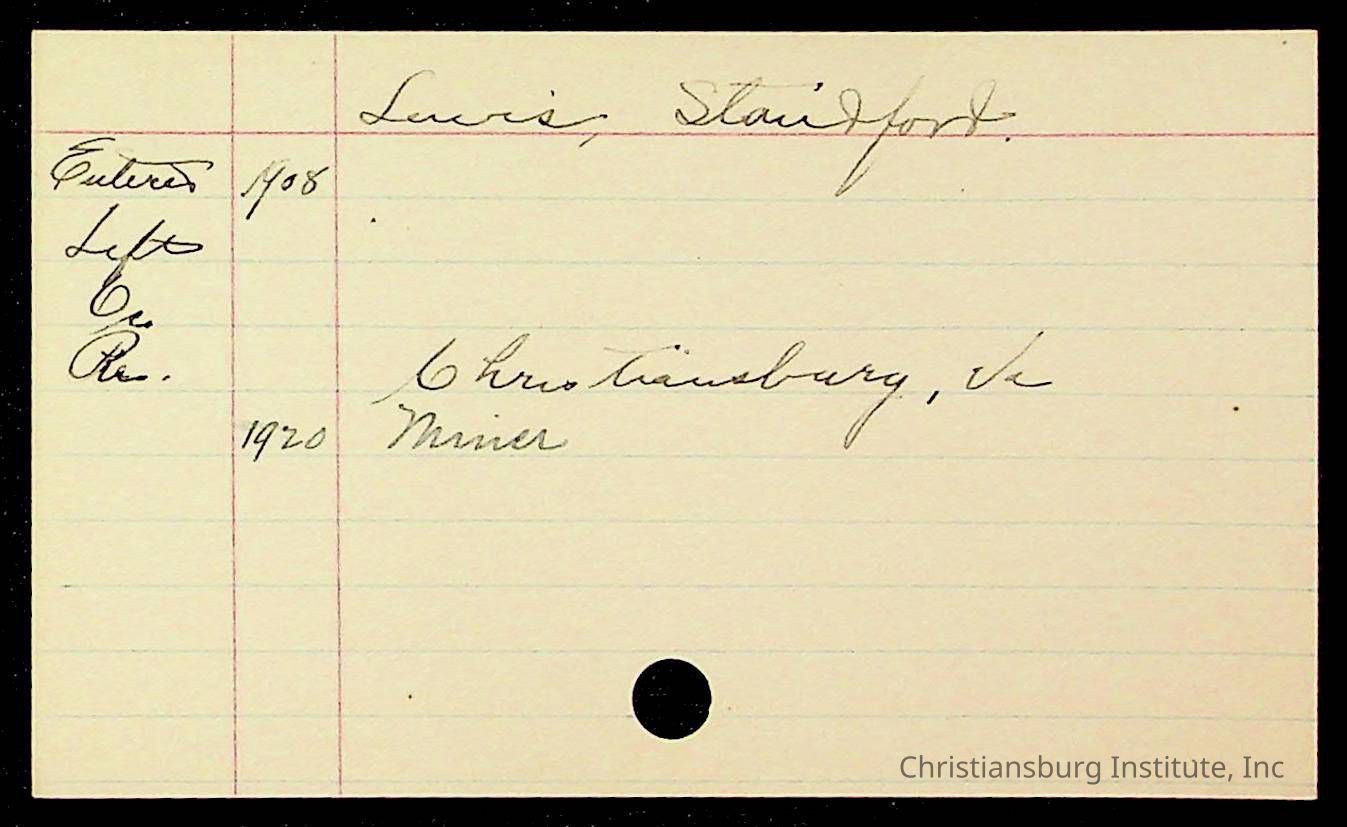 Lewis, Standford.
Entered 1908
Left
Oc.
Res.
Christiansburg, Va
1920 Miner
Christiansburg Institute, Inc